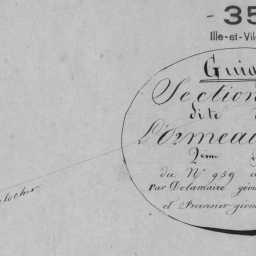 - 35
Ille-et-Vil
Guig
Section
dite
L'Ormeau
2ème
du N° 959
Par Delamaire géom
et Prevner géom
clocher